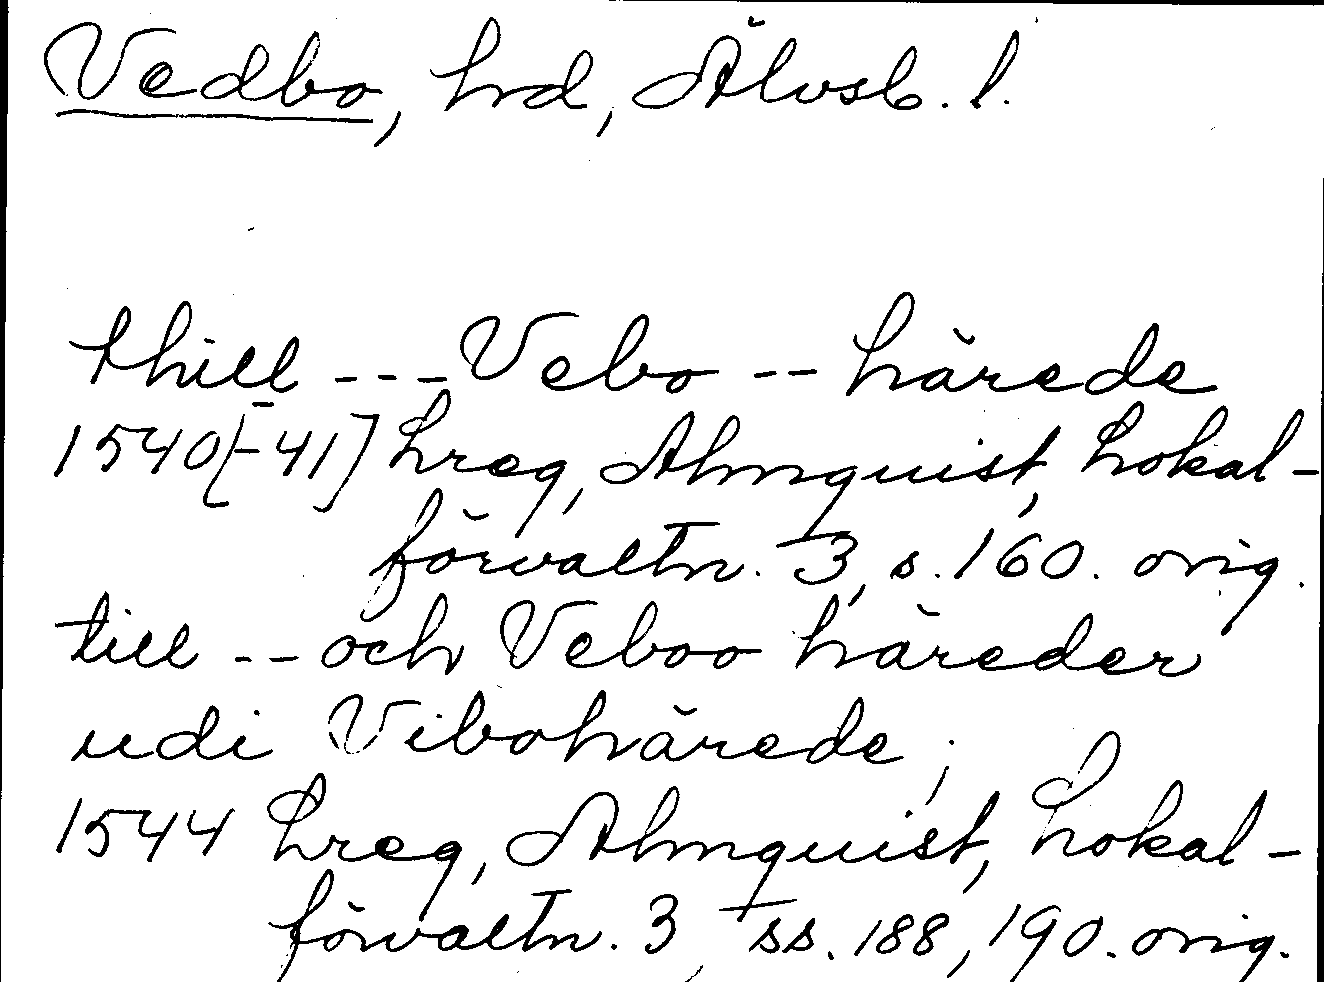 Vedbo, hrd, Älvsb. l.
thill --- Vebo -- härede
1540[-41] Lreg, Almquist, Lokal-
förvaltn. 3, s. 160. orig.
till -- och Veboo häreder
udi Vibohärede;
1544 Lreg, Almquist, Lokal-
förvaltn. 3, ss. 188, 190. orig.